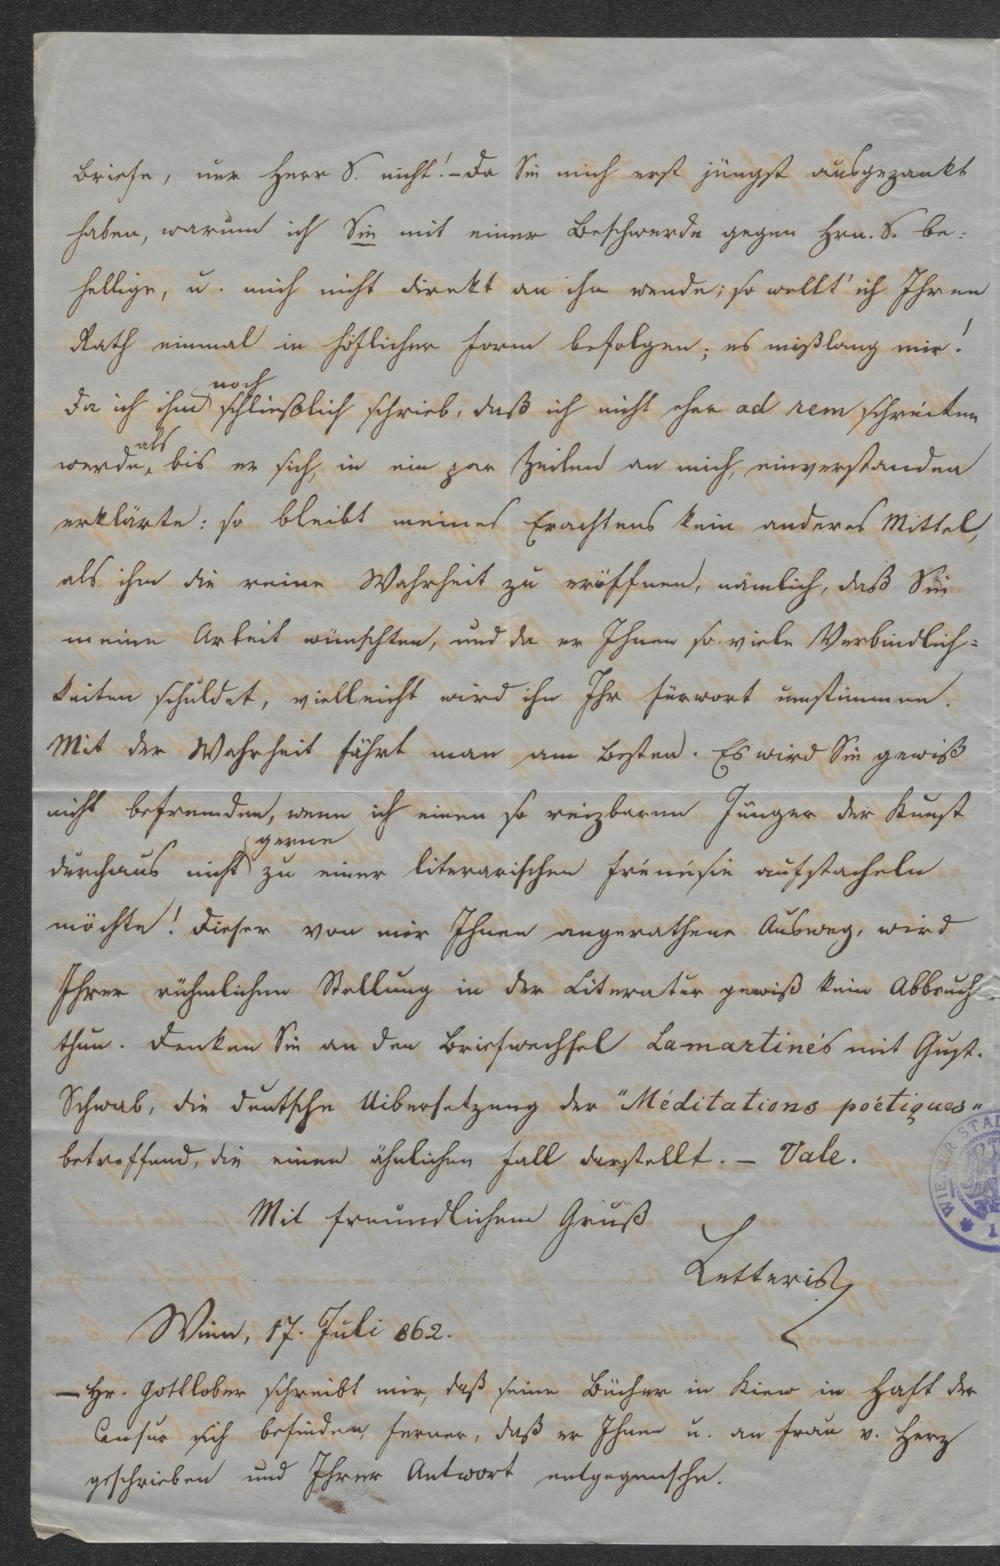 Briefe, nur Herr S. nicht! – Da Sie mich erst jüngst ausgezankt
haben, warum ich Sie mit einer Beschwerde gegen Hrn. S. be-
hellige, u. mich nicht direkt an ihn wende; so wollt' ich Ihren
Rath einmal in höflicher Form befolgen; es mißlang mir!
Da ich ihm noch schließlich schrieb, daß ich nicht eher ad rem schreiten
werde, als bis er sich, in ein par Zeilen an mich, einverstanden
erklärte: so bleibt meines Erachtens kein anderes Mittel,
als ihm die reine Wahrheit zu eröffnen, nämlich, daß Sie
meine Arbeit wünschten, und da er Ihnen so viele Verbindlich-
keiten schuldet, vielleicht wird ihn Ihr Fürwort umstimmen.
Mit der Wahrheit fährt man am Besten. Es wird Sie gewiß
nicht befremden, wenn ich einen so reizbaren Jünger der Kunst
durchaus nicht gerne zu einer literarischen Frénésie aufstacheln
möchte! Dieser von mir Ihnen angerathene Ausweg, wird
Ihrer rühmlichen Stellung in der Literatur gewiß kein Abbruch
thun. Denken Sie an den Briefwechsel Lamartine's mit Gust.
Schwab, die deutsche Uibersetzung der "Méditations poétiques"
betreffend, die einen ähnlichen Fall darstellt. – Vale.
Mit freundlichem Gruß
Letteris
Wien, 17. Juli 862.
– Hr. Gottlober schreibt mir, daß seine Bücher in Kiew in Haft der
Censur sich befinden, ferner, daß er Ihnen u. an Frau v. Herz
geschrieben und Ihrer Antwort entgegensehe.
WIENER STA